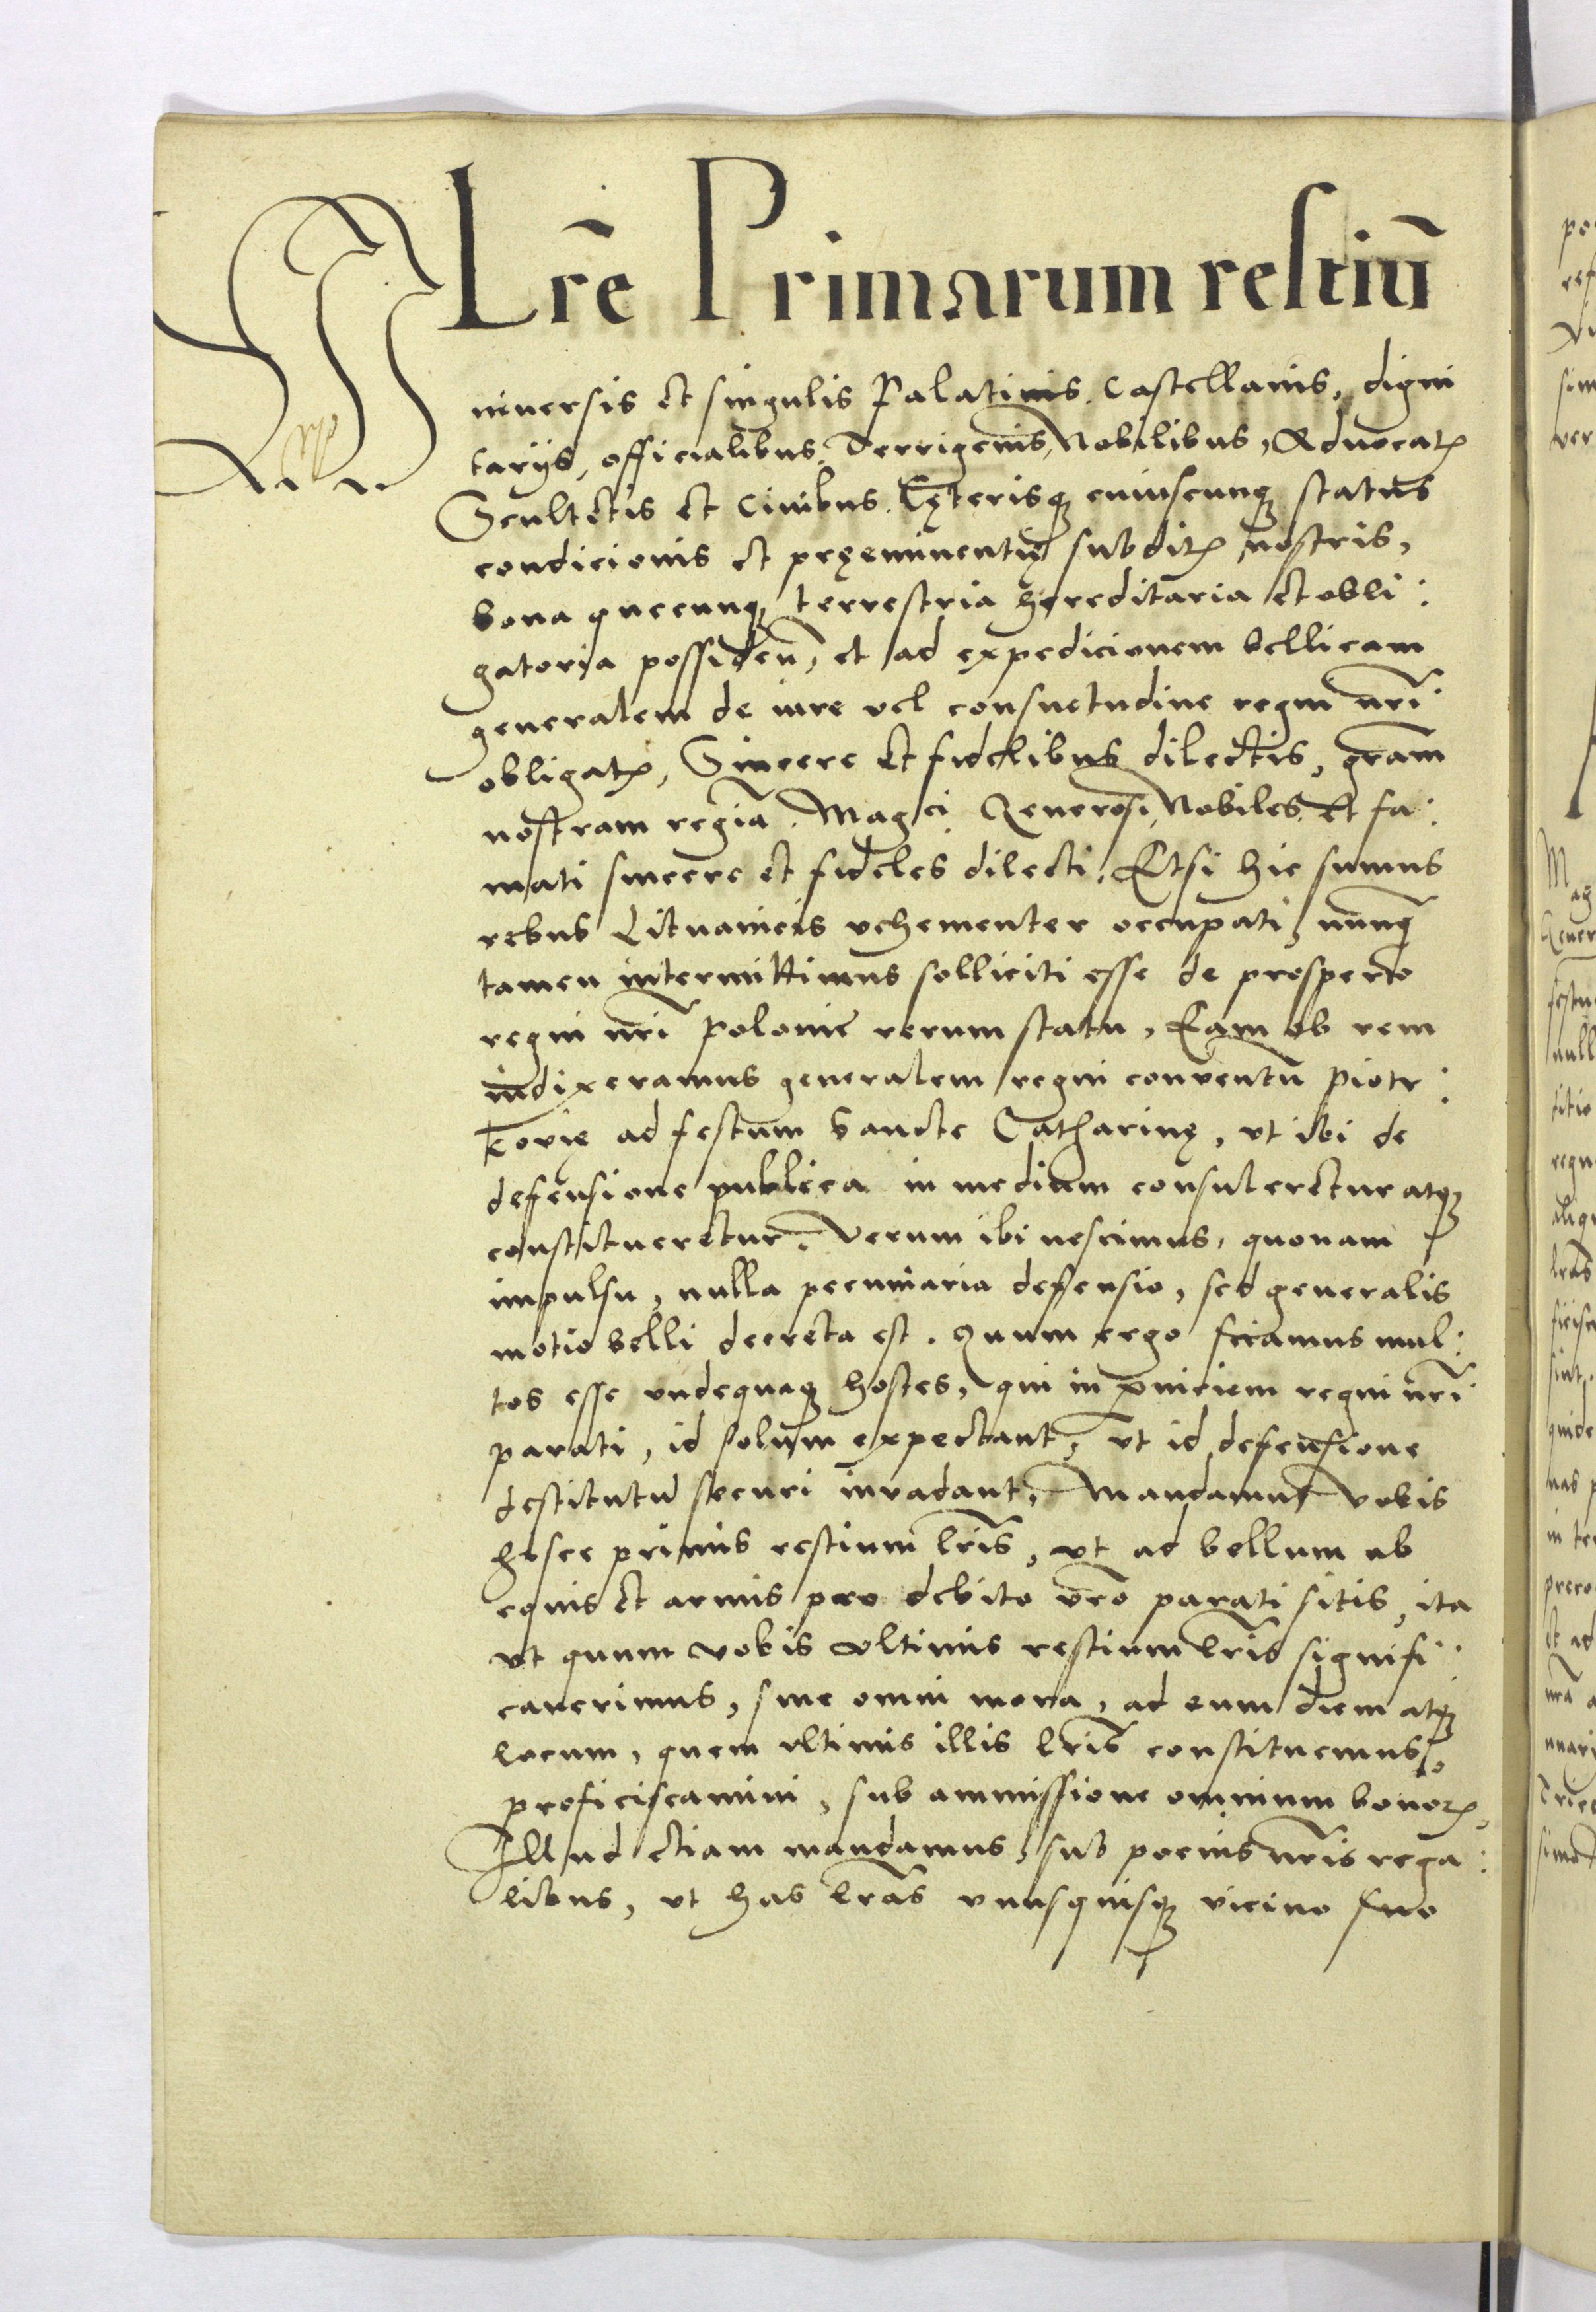 Lrē Primarum restiū
Vniuersis et singulis Palatinis. Castellanis, digni
tarijs, officialibus, Terrigenis, Nobilibus, Aduocatꝭ
Scultetis et Ciuibus. Cęterisqꝫ cuiuscunqꝫ status
condicionis et pręeminentię subditꝭ nostris,
bona quecunqꝫ terrestria hęreditaria et obli:
gatoria possideñ, et ad expedicionem bellicam
generalem de iure vel consuetudine regni nrī
obligatꝭ, Sincere et fidelibus dilectis, grām
nostram regiā. Magci Generosi, Nobiles et fa:
mati sincere et fideles dilecti. Etsi hic sumus
rebus Lituanicis vehementer occupati, nunq̄
tamen intermittimus solliciti esse de prospero
regni nrī Polonię rerum statu, Eam ob rem
indixeramus generalem regni conventū Piotr:
kovię ad festum Sancte Catharinę, vt ibi de
defensione publica in medium consuleretur atqꝫ
constitueretur. Verum ibi nescimus, quonam
impulsu, nulla pecuniaria defensio, sed generalis
motio belli decreta est. Quum ergo sciamus mul:
tos esse vndequaqꝫ hostes, qui in ꝑniciem regni nrī
parati, id solum expectant, vt id defensione
destitutū securi invadant, Mandamus vobis
hisce primis restium lrīs, vt ad bellum ab
equis et armis pro debito vrō parati sitis, ita
vt quum vobis vltimis restium lrīs signifi:
caverimus, sine omni mora, ad eum diem atqꝫ
locum, quem vltimis illis lrīs constituemus,
proficiscamini, sub ammissione omnium bonorꝭ,
Illud etiam mandamus, sub poenis nrīs rega:
libus, vt has lrās vnusquisqꝫ vicino suo